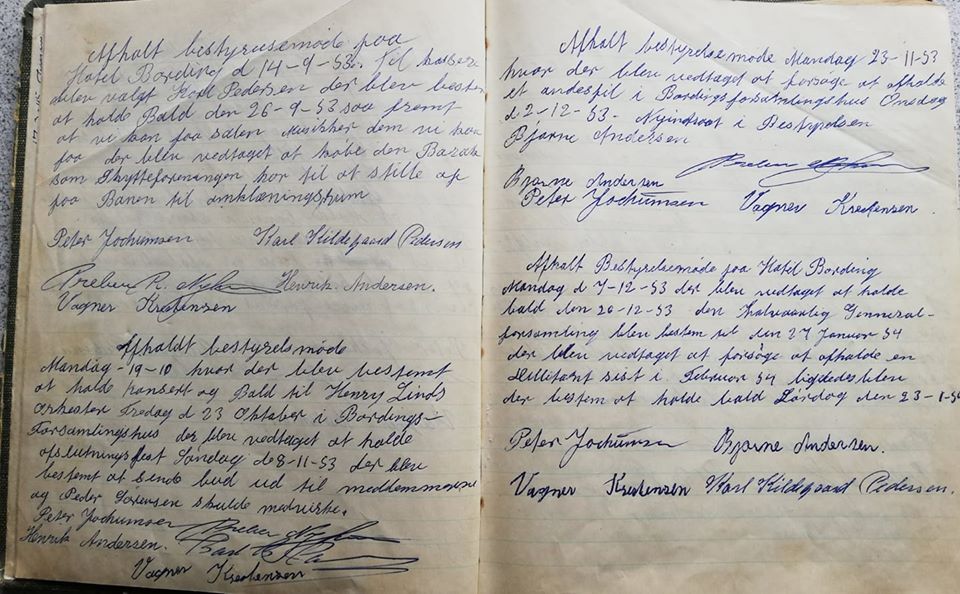 Afholt bestyrelsemøde paa
Hotel Bording d 14-9-53. til kasserer
blev valgt Karl Pedersen der blev bestemt
at holde Bald den 26-9-53 saa fremt
at vi kan faa salen Musikker dem vi kan
faa der blev vedtaget at købe den Barak
som Skytteforeningen har til at stille op
paa Banen til omklæningsrum
Peter Jochumsen Karl Kildegaard Pedersen
Preben R. Henrik Andersen.
Vagner Krestensen
Afholdt bestyrelsmøde
Mandag-19-10 hvor der blev bestemt
at holde konsert og Bald til Henry Linds
Orkester Fredag d 23 Oktober i Bordings-
Forsamlingshus der blev vedtaget at holde
afslutningsfest Søndag d 8-11-53 der blev
bestemt at sende bud ud til medlemmerne
og Peder Sørensen skulde medvirke.
Peter Jochumsen Preben
Henrik Andersen. Karl
Vagner Krestensen
Afholt bestyrelsemøde Mandag 23-11-53
hvor der blev vedtaget at forsøge at afholde
et andespil i Bordings forsamlingshus Onsdag
d 2-12-53. i Bestyrelsen
Bjarne Andersen
Preben
Bjarne Andersen
Peter Jochumsen Vagner Krestensen.
Afholt Bestyrelsemøde paa Hotel Bording
Mandag d 7-12-53 der blev vedtaget at holde
bald den 26-12-53 den halvaarlig Genneral-
forsamling blev bestem til den 27 Januar 54
der blev vedtaget at forsøge at afholde en
sist i Februar 54 ligeledes blev
der bestem at holde bald Lørdag den 23-1-54
Peter Jochumsen Bjarne Andersen.
Vagner Krestensen Karl Kildegaard Pedersen.